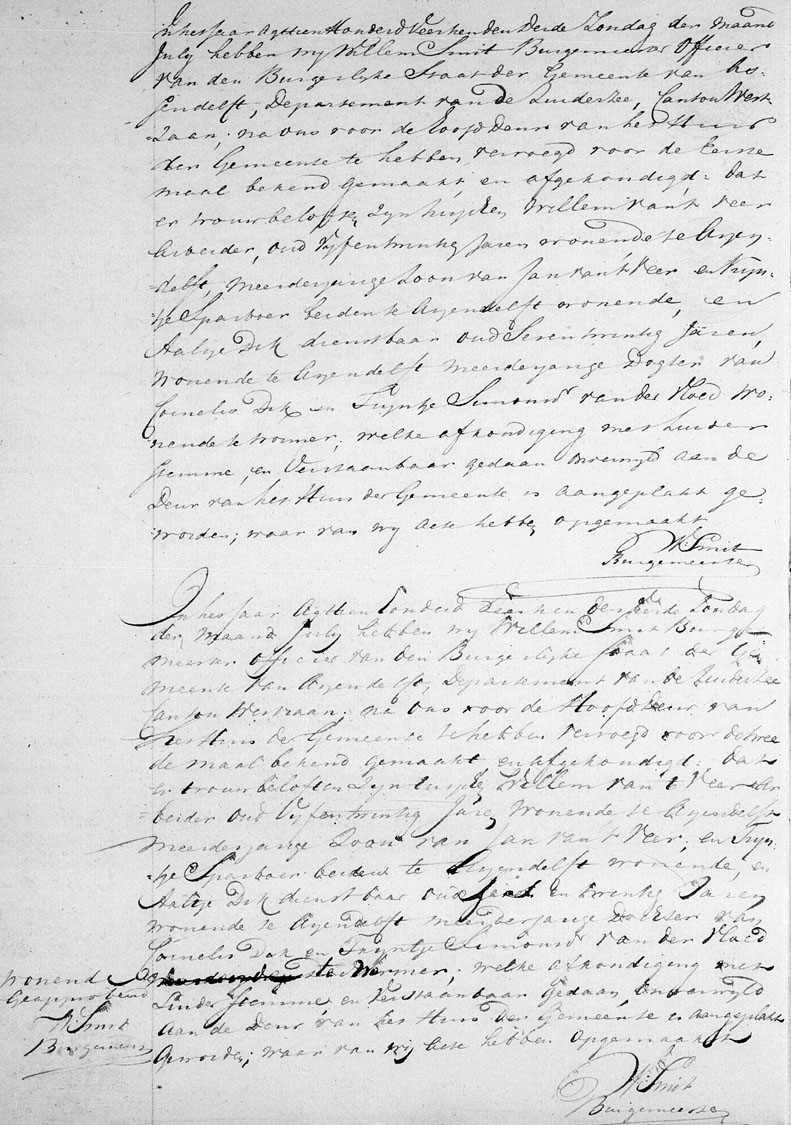 In het Jaar Agttien Honderd Veertien den Derde Zondag der maand
July hebben wy Willem Smit Burgemeester Officier
van den Burgerlyke Staat der Gemeente van As-
sendelft, Departement van de Zuiderzee, Canton West-
Zaan, na ons voor de Hoofd Deur van het Huis
der Gemeente te hebben vervoegd voor de Eerste
maal bekend gemaakt en afgekondigd: dat
er trouwbeloften Zyn tusschen Willem van't Veer
Arbeider, oud Vyfentwintig Jaren wonende te Assen-
delft, meerderjarige Zoon van Jan van't Veer en Tryn-
tje Sparboer beiden te Assendelft wonende, en
Aaltje Dik dienstbaar oud Seventwintig Jaren,
wonende te Assendelft meerderjarige Dogter van
Cornelis Dik en Tryntje Simons van der Vloed wo-
nende te wormer; welke afkondiging met luider
stemme, en Verstaanbaar gedaan aan de
Deur van het Huis der Gemeente is aangeplakt ge-
worden; waar van wy acte hebben opgemaakt
W: Smit
Burgemeester
In het Jaar Agttien Honderd Veertien den Vierde Zondag
der maand July hebben wy Willem Smit Burge-
meester officier van den Burgerlyke Staat der Ge-
meente van Assendelft, Departement van de Zuiderzee
Canton Westzaan, na ons voor de Hoofd Deur van
het Huis der Gemeente te hebben vervoegd voor de twee
de maal bekend gemaakt en afgekondigd: dat
er trouwbeloften Zyn tusschen Willem van't Veer Ar-
beider oud Vyfentwintig Jaren wonende te Assendelft
meerderjarige Zoon van Jan van't Veer, en Tryn-
tje Sparboer beiden te Assendelft wonende, en
Aaltje Dik dienstbaar oud Seven en twintig Jaren
wonende te Assendelft meerderjarige Dochter van
Cornelis Dik en Tryntje Simons van der Vloed
te Wormer; welke afkondiging met
Luider Stemme en Verstaanbaar gedaan
aan de Deur van het Huis der Gemeente is aangeplakt
Geworden; waar van wij Acte hebben opgemaakt
W: Smit
Burgemeester
wonende
Geapprobeerd
W: Smit
Burgemeester